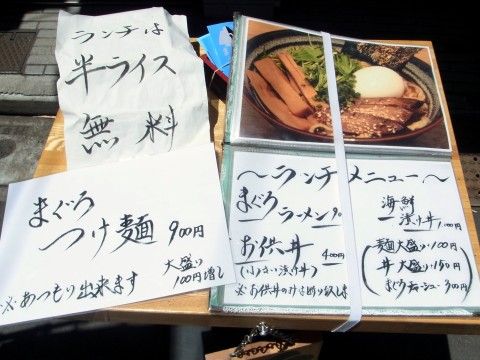 ランチは
半ライス
無料
まぐろ
つけ麺 900円
大盛り
100円増し
※あつもり出来ます
～ランチメニュー～
まぐろ
ラーメン
お供丼 400円
(小さい漬け丼)
※お供丼のみはお断り致します
海鮮
漬け丼 1,000円
麺大盛り・100円
丼大盛り・150円
まぐろチャーシュー 300円